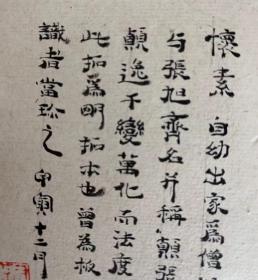 懷素 自幼出家為僧
与張旭齊名并稱顛張
顛逸千變萬化而法度
此拓為明拓本也曾為板
識者當珍之 甲寅十二月